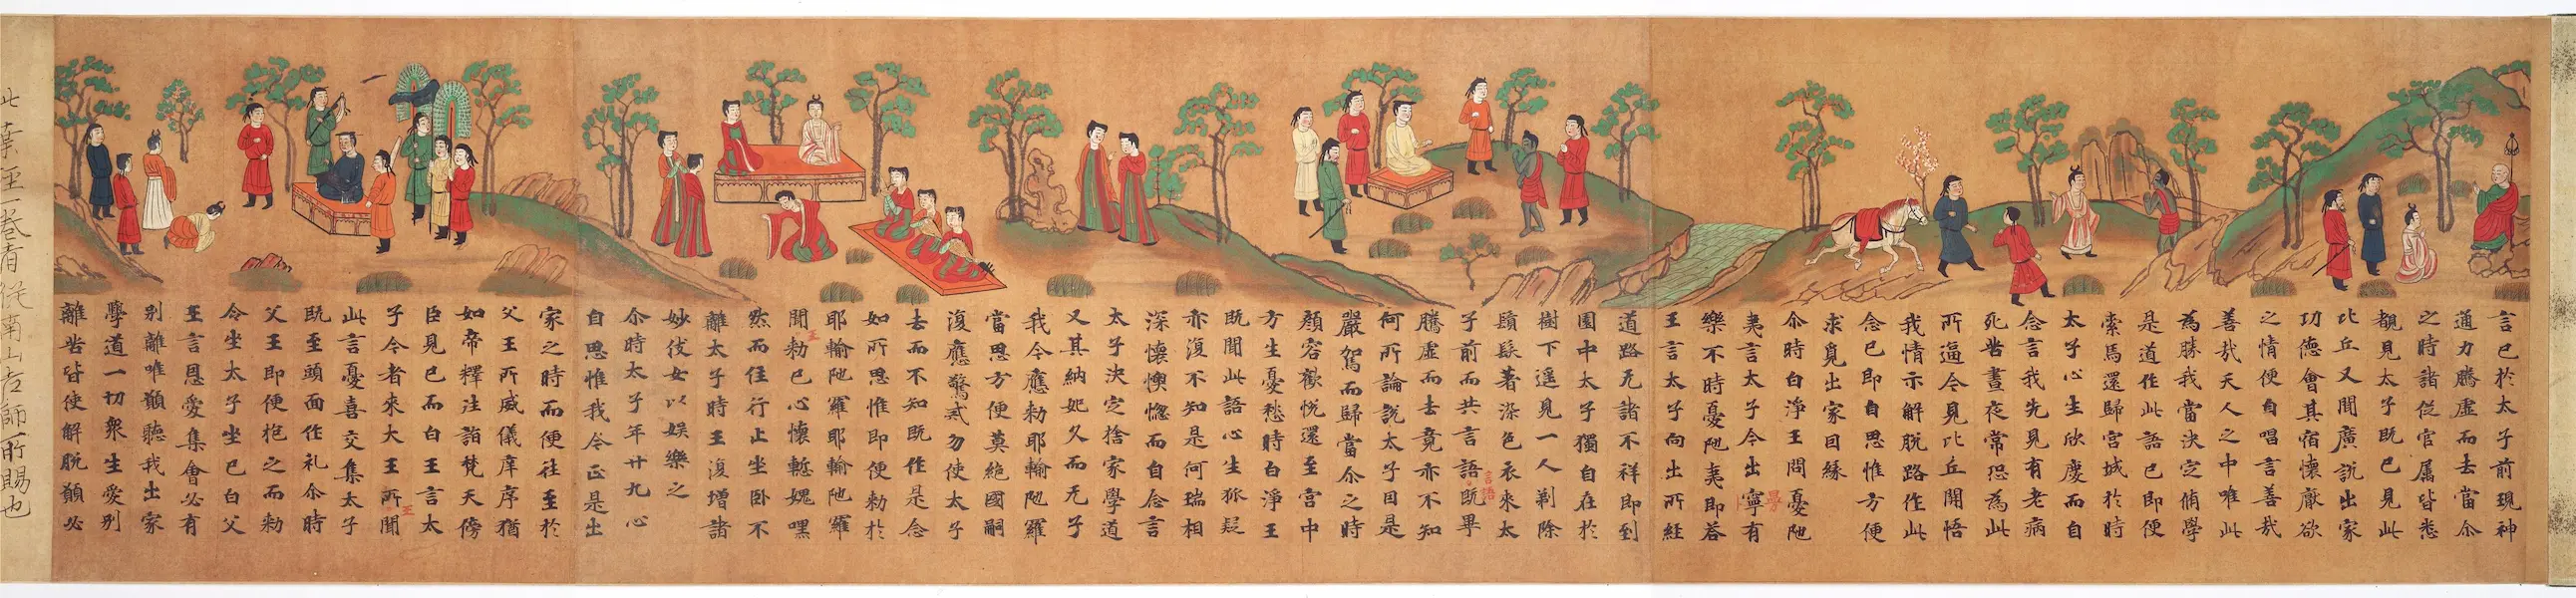 言已於太子前現神
通力騰虚而去當尒
之時諸従官属皆悉
覩見太子既已見此
比丘又聞廣説出家
功徳會其宿懐厭欲
之情便自唱言善哉
善哉天人之中唯此
為勝我當决定脩學
是道作此語已即便
索馬還歸宮城於時
太子心生欣慶而自
念言我先見有老病
死苦晝夜常恐為此
所逼今見比丘開悟
我情示解脱路作此
念已即自思惟方便
求覓出家因縁
尒時白淨王問憂陁
夷言太子今出寧有
樂不時憂陁夷即荅
王言太子向出所經
道路无諸不祥即到
園中太子獨自在於
樹下遥見一人剃除
鬚髮著染色衣來太
子前而共言語既畢
言語
騰虚而去竟亦不知
何所論説太子因是
嚴駕而歸當尒之時
顔容歡悦還至宮中
方生憂愁時白淨王
既聞此語心生狐疑
亦復不知是何瑞相
深懐懊惱而自念言
太子决定捨家學道
又其納妃久而无子
我今應勅耶輸陁羅
當思方便莫絶國嗣
復應驚戒勿使太子
去而不知既作是念
如所思惟即便勅於
耶輸陁羅耶輸陁羅
王
聞勅已心懐慙媿嘿
然而住行止坐卧不
離太子時王復増諸
妙伎女以娯樂之
尒時太子年廿九心
自思惟我今正是出
家之時而便往至於
父王所威儀庠序猶
如帝釋往詣梵天傍
臣見已而白王言太
子今者來大王所聞
王
此言憂喜交集太子
既至頭面作礼尒時
父王即便抱之而勅
令坐太子坐已白父
王言恩愛集會必有
別離唯願聽我出家
學道一切衆生愛別
離苦皆使解脱願必
此 一巻 従南山 師所賜也